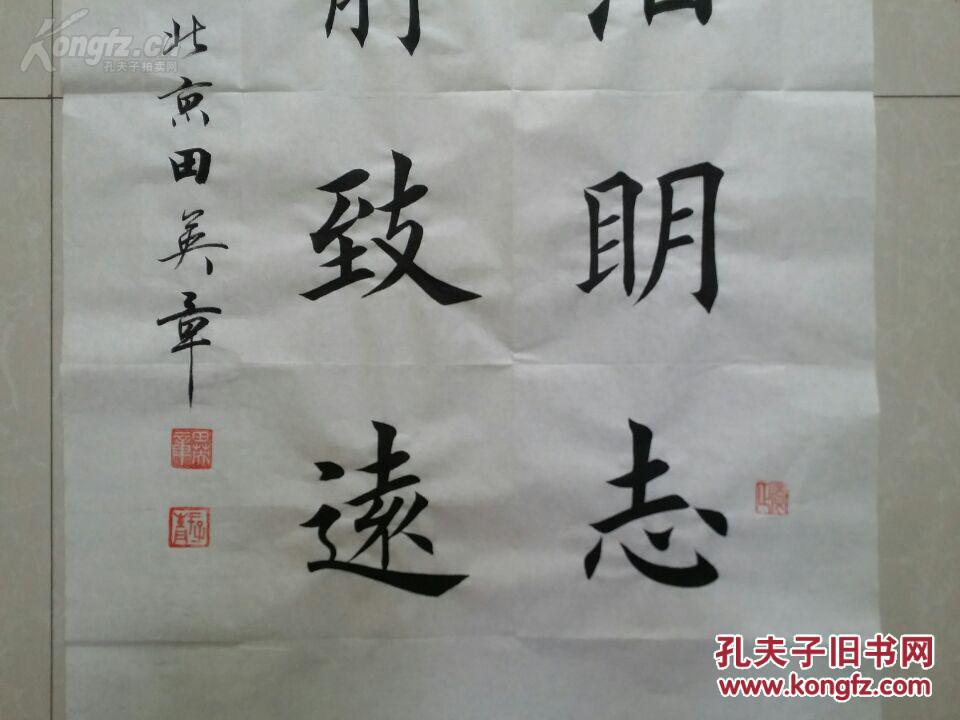 明志
致遠
北京田英章
Kongfz.cn
孔夫子拍卖网
孔夫子旧书网
www.kongfz.com